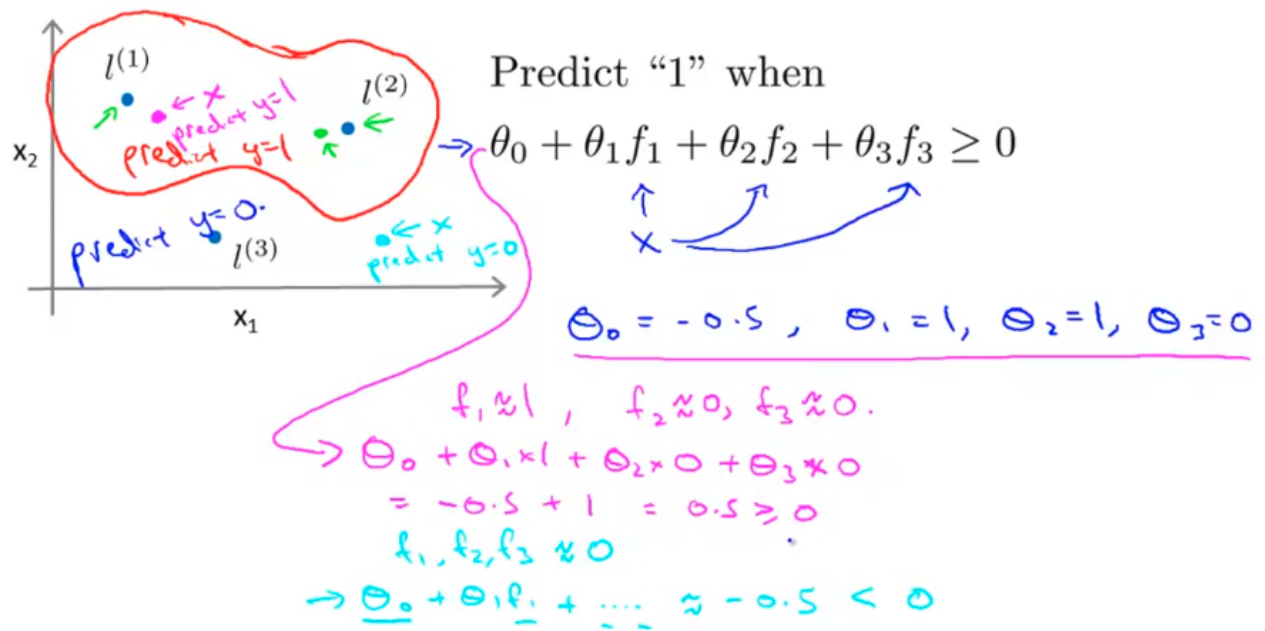 l⁽¹⁾
← x
predict y=1
l⁽²⁾
predict y=1
x₂
predict y=0.
l⁽³⁾
← x
predict y=0
x₁
Predict “1” when
θ₀ + θ₁f₁ + θ₂f₂ + θ₃f₃ ≥ 0
x
θ₀ = -0.5 , θ₁ = 1, θ₂=1, θ₃=0
f₁≈1 , f₂≈0, f₃≈0.
→ θ₀ + θ₁×1 + θ₂×0 + θ₃×0
= -0.5 + 1 = 0.5 ≥ 0
f₁,f₂,f₃ ≈ 0
→ θ₀ + θ₁f₁ + .... ≈ -0.5 < 0